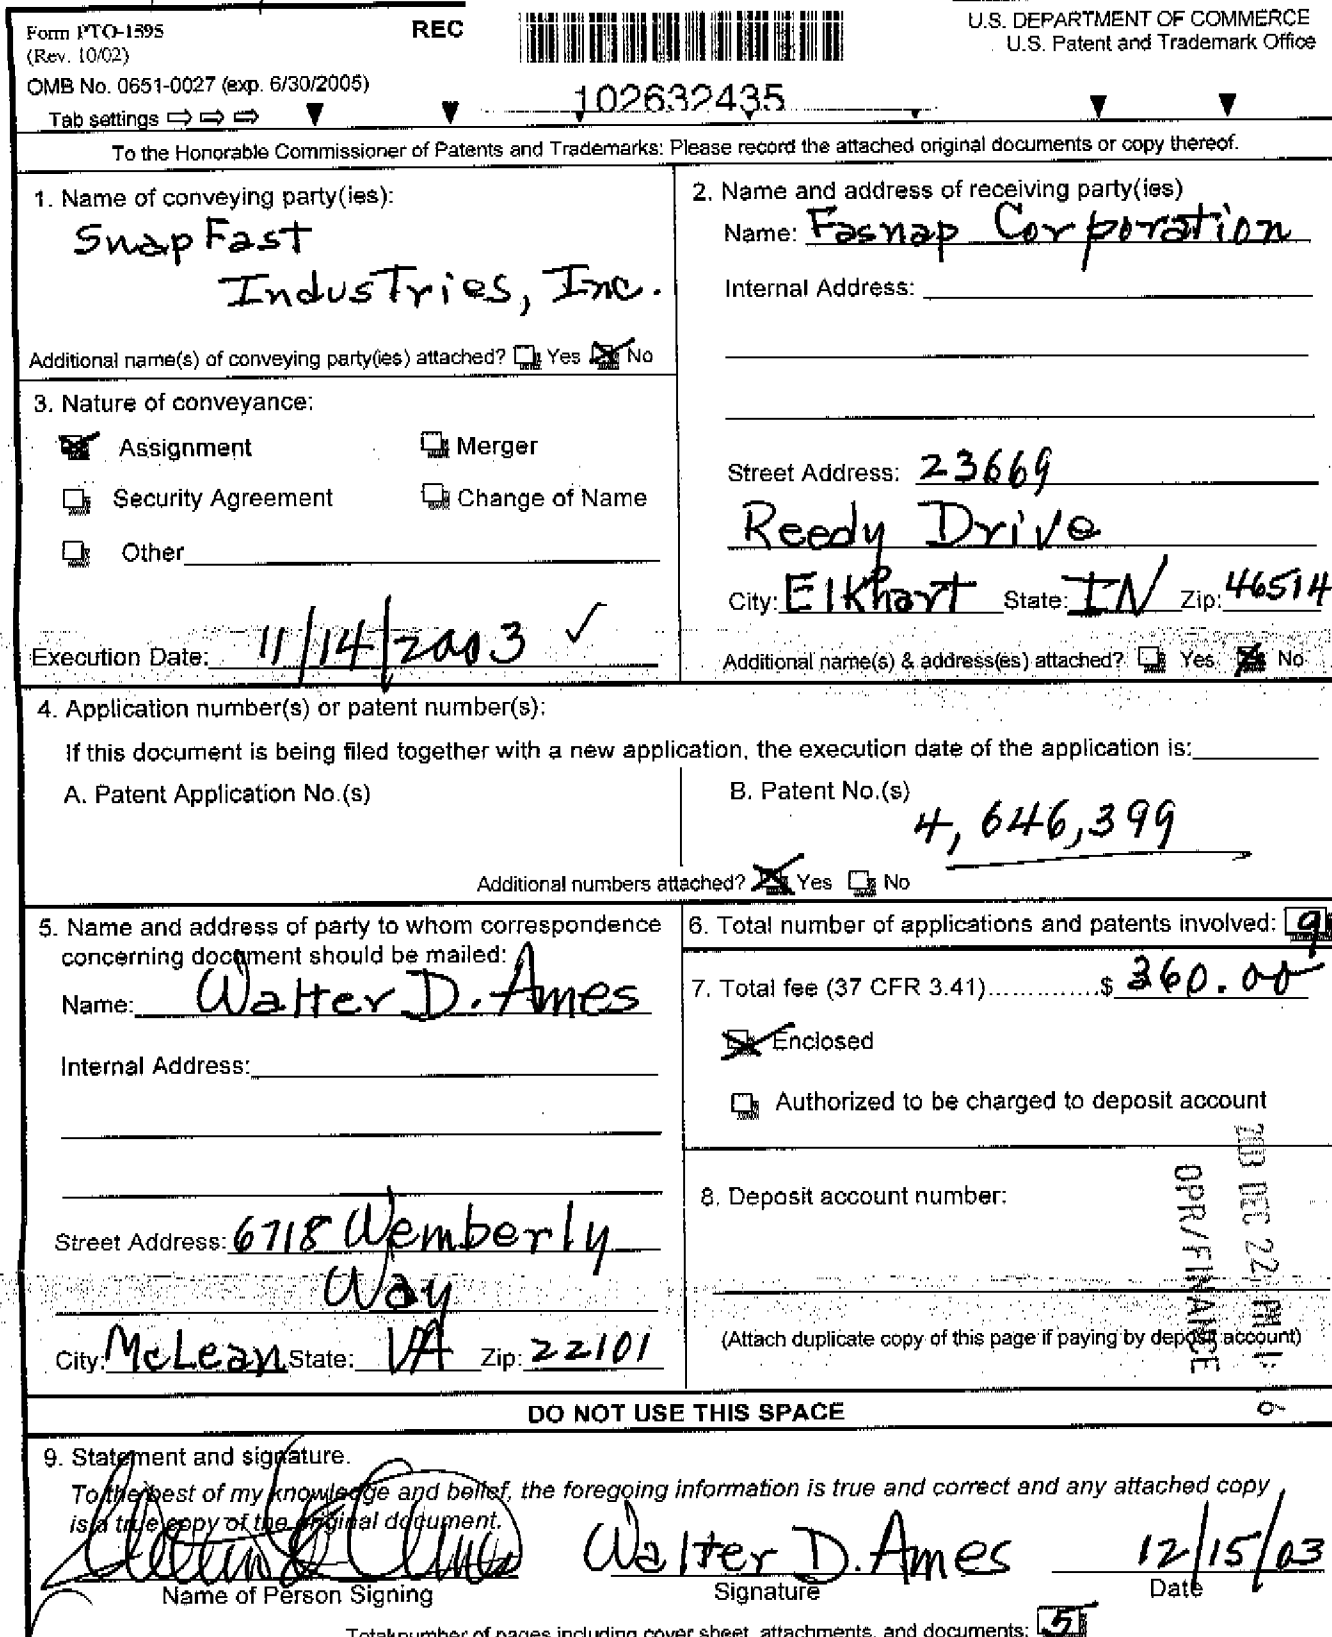 Form PTO-1595
(Rev. 10/02)
OMB No. 0651-0027 (exp. 6/30/2005)
Tab settings ⇨ ⇨ ⇨
REC
102632435
U.S. DEPARTMENT OF COMMERCE
U.S. Patent and Trademark Office
To the Honorable Commissioner of Patents and Trademarks: Please record the attached original documents or copy thereof.
1. Name of conveying party(ies):
SnapFast
Industries, Inc.
Additional name(s) of conveying party(ies) attached? Yes No
2. Name and address of receiving party(ies)
Name: Fasnap Corporation
Internal Address:
3. Nature of conveyance:
Assignment Merger
Security Agreement Change of Name
Other
Execution Date: 11/14/2003 ✓
Street Address: 23669
Reedy Drive
City: Elkhart State: IN Zip: 46514
Additional name(s) & address(es) attached? Yes No
4. Application number(s) or patent number(s):
If this document is being filed together with a new application, the execution date of the application is:
A. Patent Application No.(s)
B. Patent No.(s)
4,646,399
Additional numbers attached? Yes No
5. Name and address of party to whom correspondence
concerning document should be mailed:
Name: Walter D. Ames
Internal Address:
Street Address: 6718 Wemberly
Way
City: McLean State: VA Zip: 22101
6. Total number of applications and patents involved: 9
7. Total fee (37 CFR 3.41)..............$ 360.00
Enclosed
Authorized to be charged to deposit account
8. Deposit account number:
(Attach duplicate copy of this page if paying by deposit account)
2003 DEC 22
OPR/FINANCE
DO NOT USE THIS SPACE
9. Statement and signature.
To the best of my knowledge and belief, the foregoing information is true and correct and any attached copy
is a true copy of the original document.
Walter D. Ames 12/15/03
Name of Person Signing Signature Date
Total number of pages including cover sheet, attachments, and documents: 5